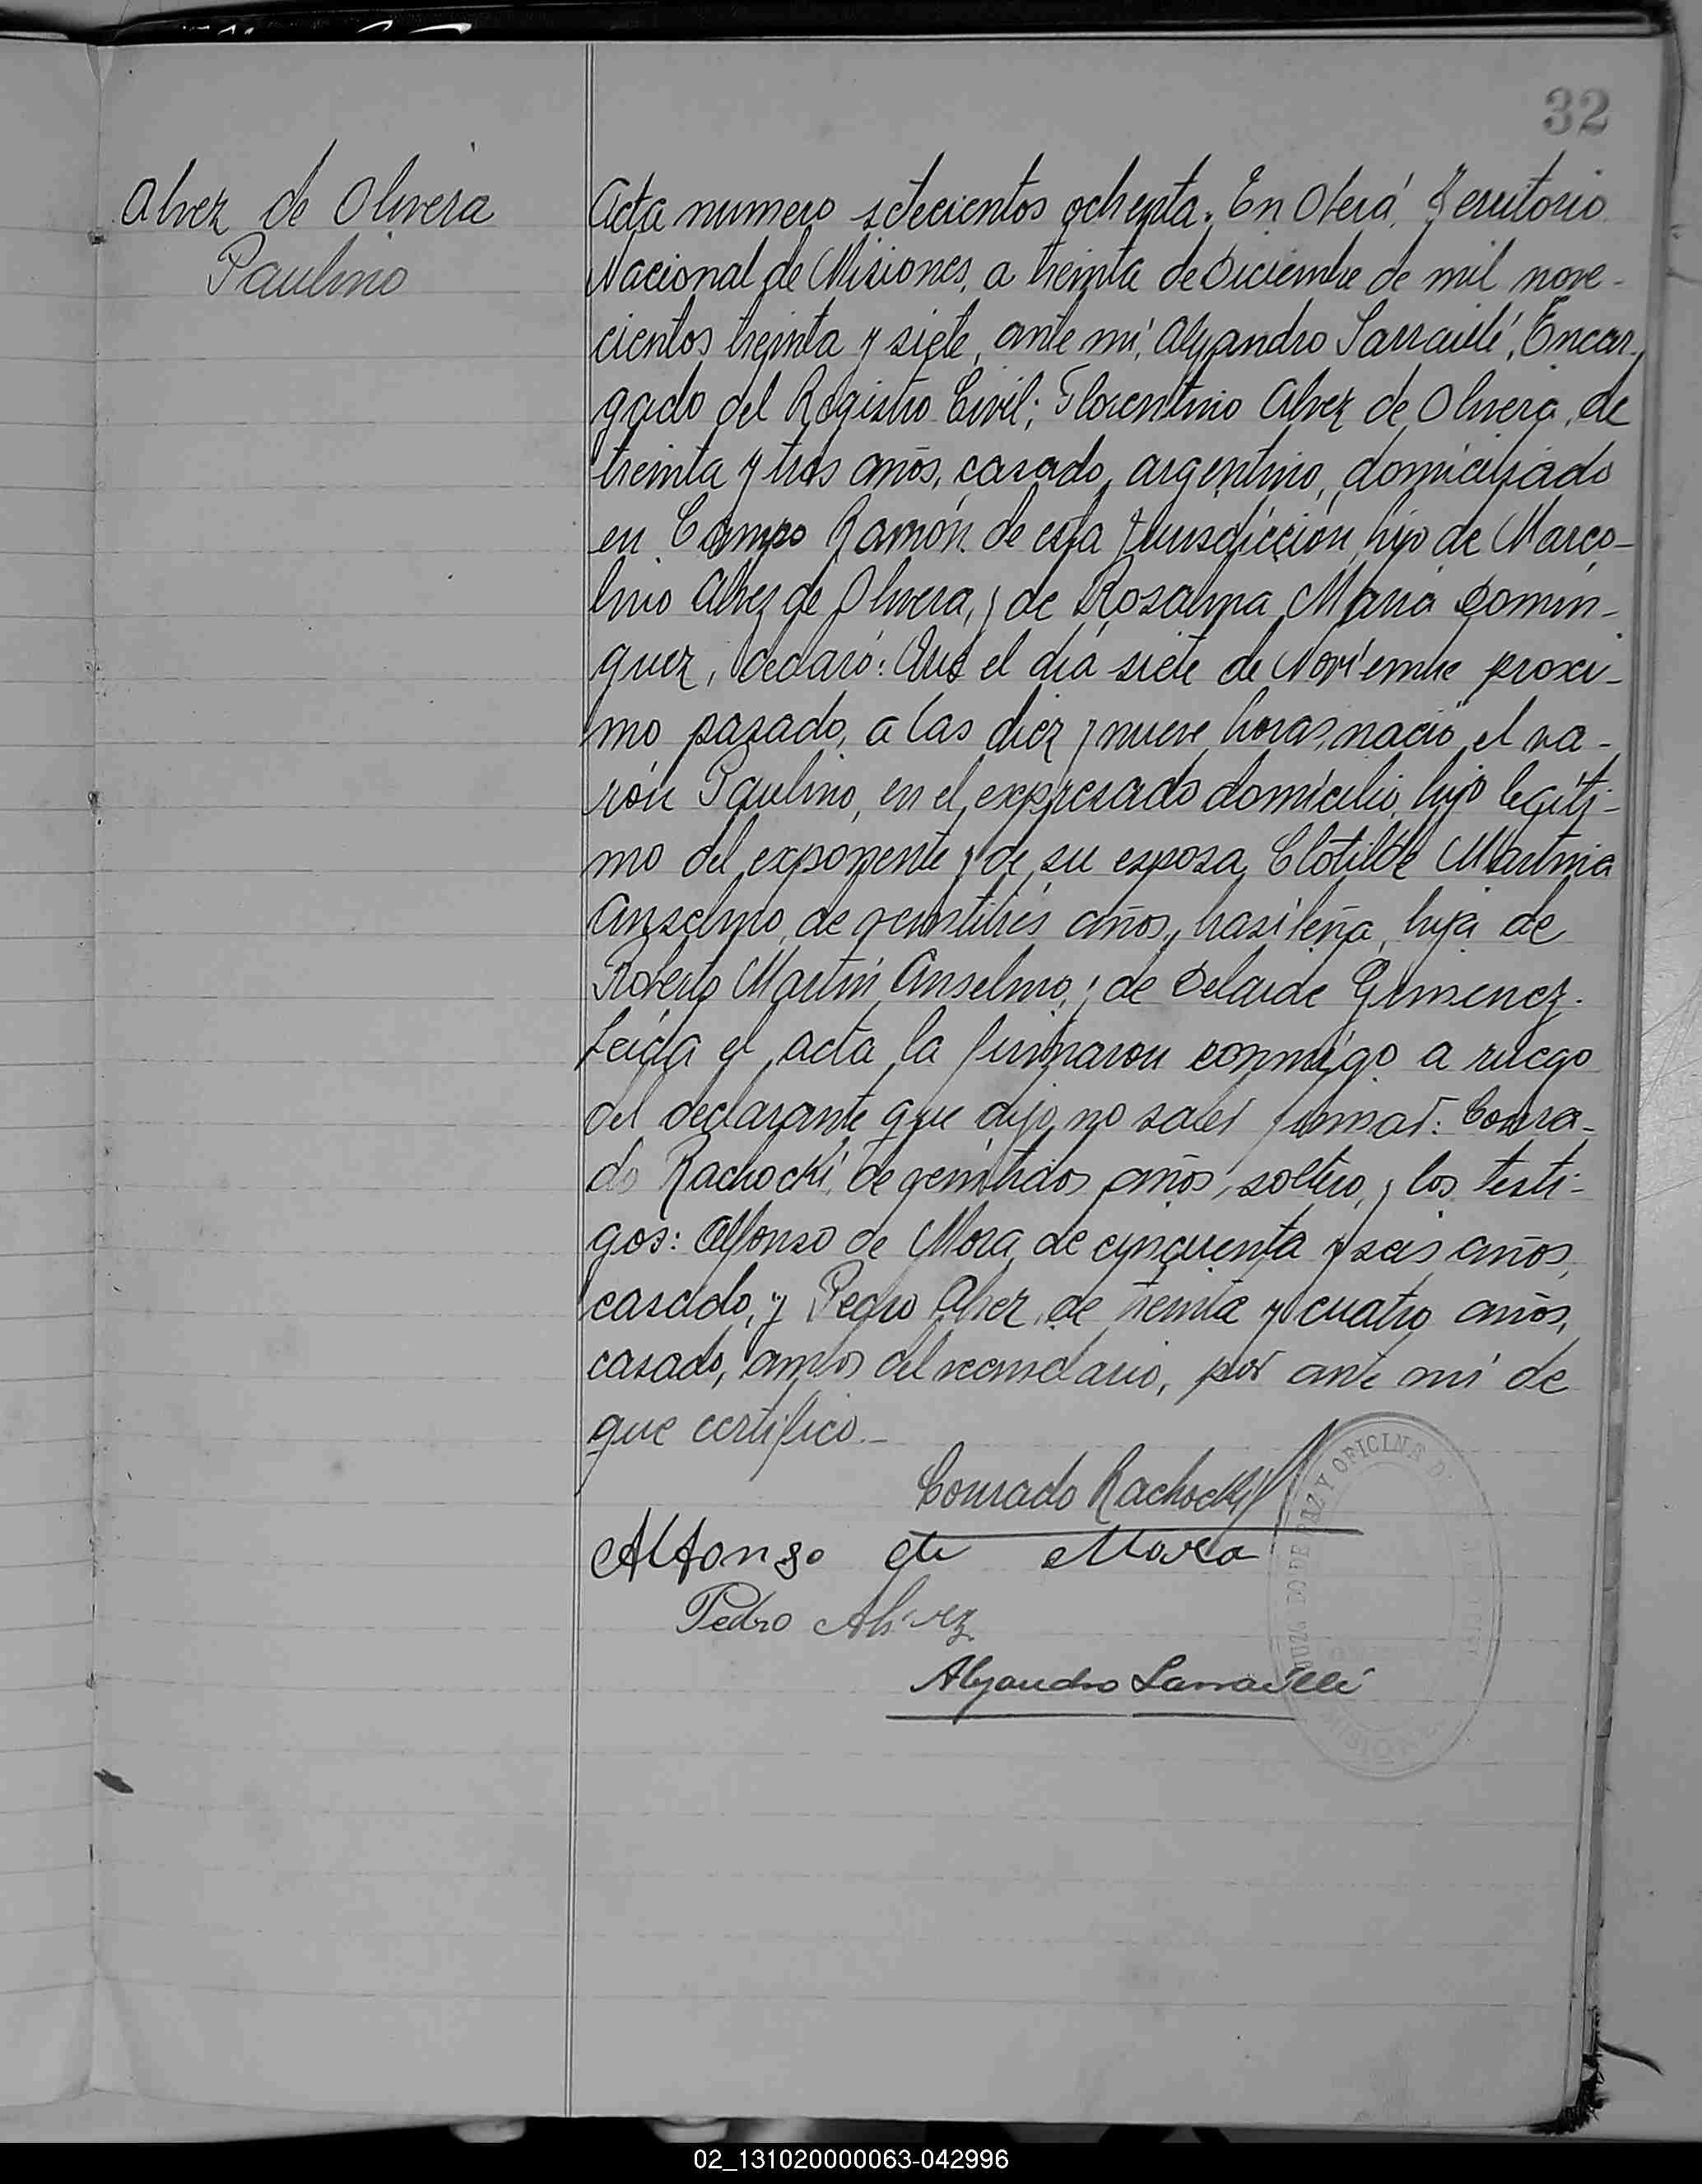 32
Alvez de Olivera
Paulino
Acta numero setecientos ochenta. En Oberá, Territorio
Nacional de Misiones, a treinta de Diciembre de mil nove-
cientos treinta y siete, ante mí, Alejandro Sarraillé, Encar-
gado del Registro Civil; Florentino Alvez de Olivera, de
treinta y tres años, casado, argentino, domiciliado
en Campo Ramón de esta Jurisdicción, hijo de Marco-
lino Alvez de Olivera, y de Rosalina Maria Domin-
guez, declaró: Que el día siete de Noviembre proxi-
mo pasado, a las diez y nueve horas, nació el va-
rón Paulino, en el expresado domicilio, hijo legíti-
mo del exponente y de su esposa Clotilde Martina
Anselmo, de veintitrés años, brasileña, hija de
Roberto Martín Anselmo, y de Delaide Gimenez.
Leída el acta la firmaron conmigo a ruego
del declarante que dijo no saber firmar: Conra-
do Rachocki, de veintidos años, soltero, y los testi-
gos: Alfonso de Mora, de cincuenta y seis años,
casado, y Pedro Alvez, de treinta y cuatro años,
casado, ambos del vecindario, por ante mí de
que certifico.-
Conrado Rachocki
Alfonso de Mora
Pedro Alvez
Alejandro Sarraillé
DE PAZ Y OFICINA D
02_131020000063-042996